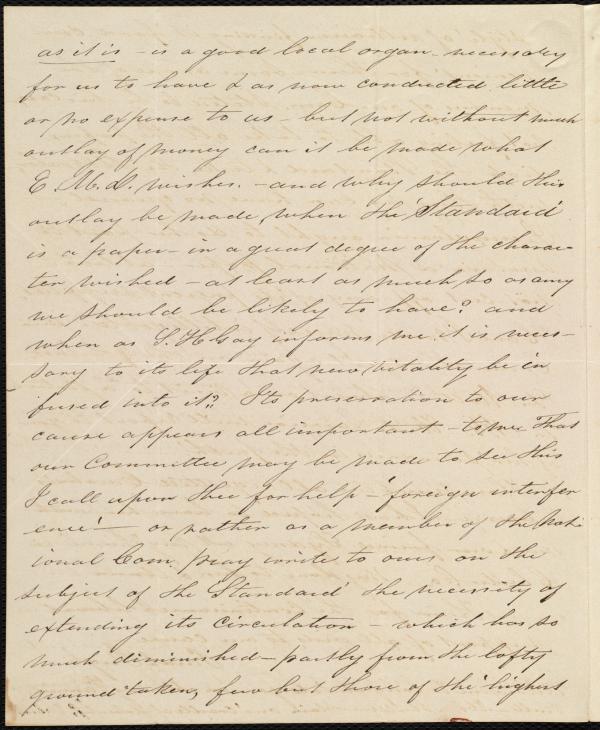 as it is - is a good local organ - necessary
for us to have & as now conducted little
or no expense to us - but not without much
outlay of money can it be made what
E. M. D. wishes. - and why should this
outlay be made, when the 'Standard'
is a paper - in a great degree of the charac-
ter wished - at least as much so as any
we should be likely to have? and
when as S. H Gay informs me it is neces-
sary to its life that new vitality be in
fused into it? Its preservation to our
cause appears all important - to me That
our Committee may be made to see this
I call upon thee for help - 'foreign interfer
ence' - or rather as a member of the Nat-
ional Com. pray write to ours on the
subject of the 'Standard' the necessity of
extending its circulation - which has so
much diminished - partly from the lofty
ground taken, few but those of the 'highest